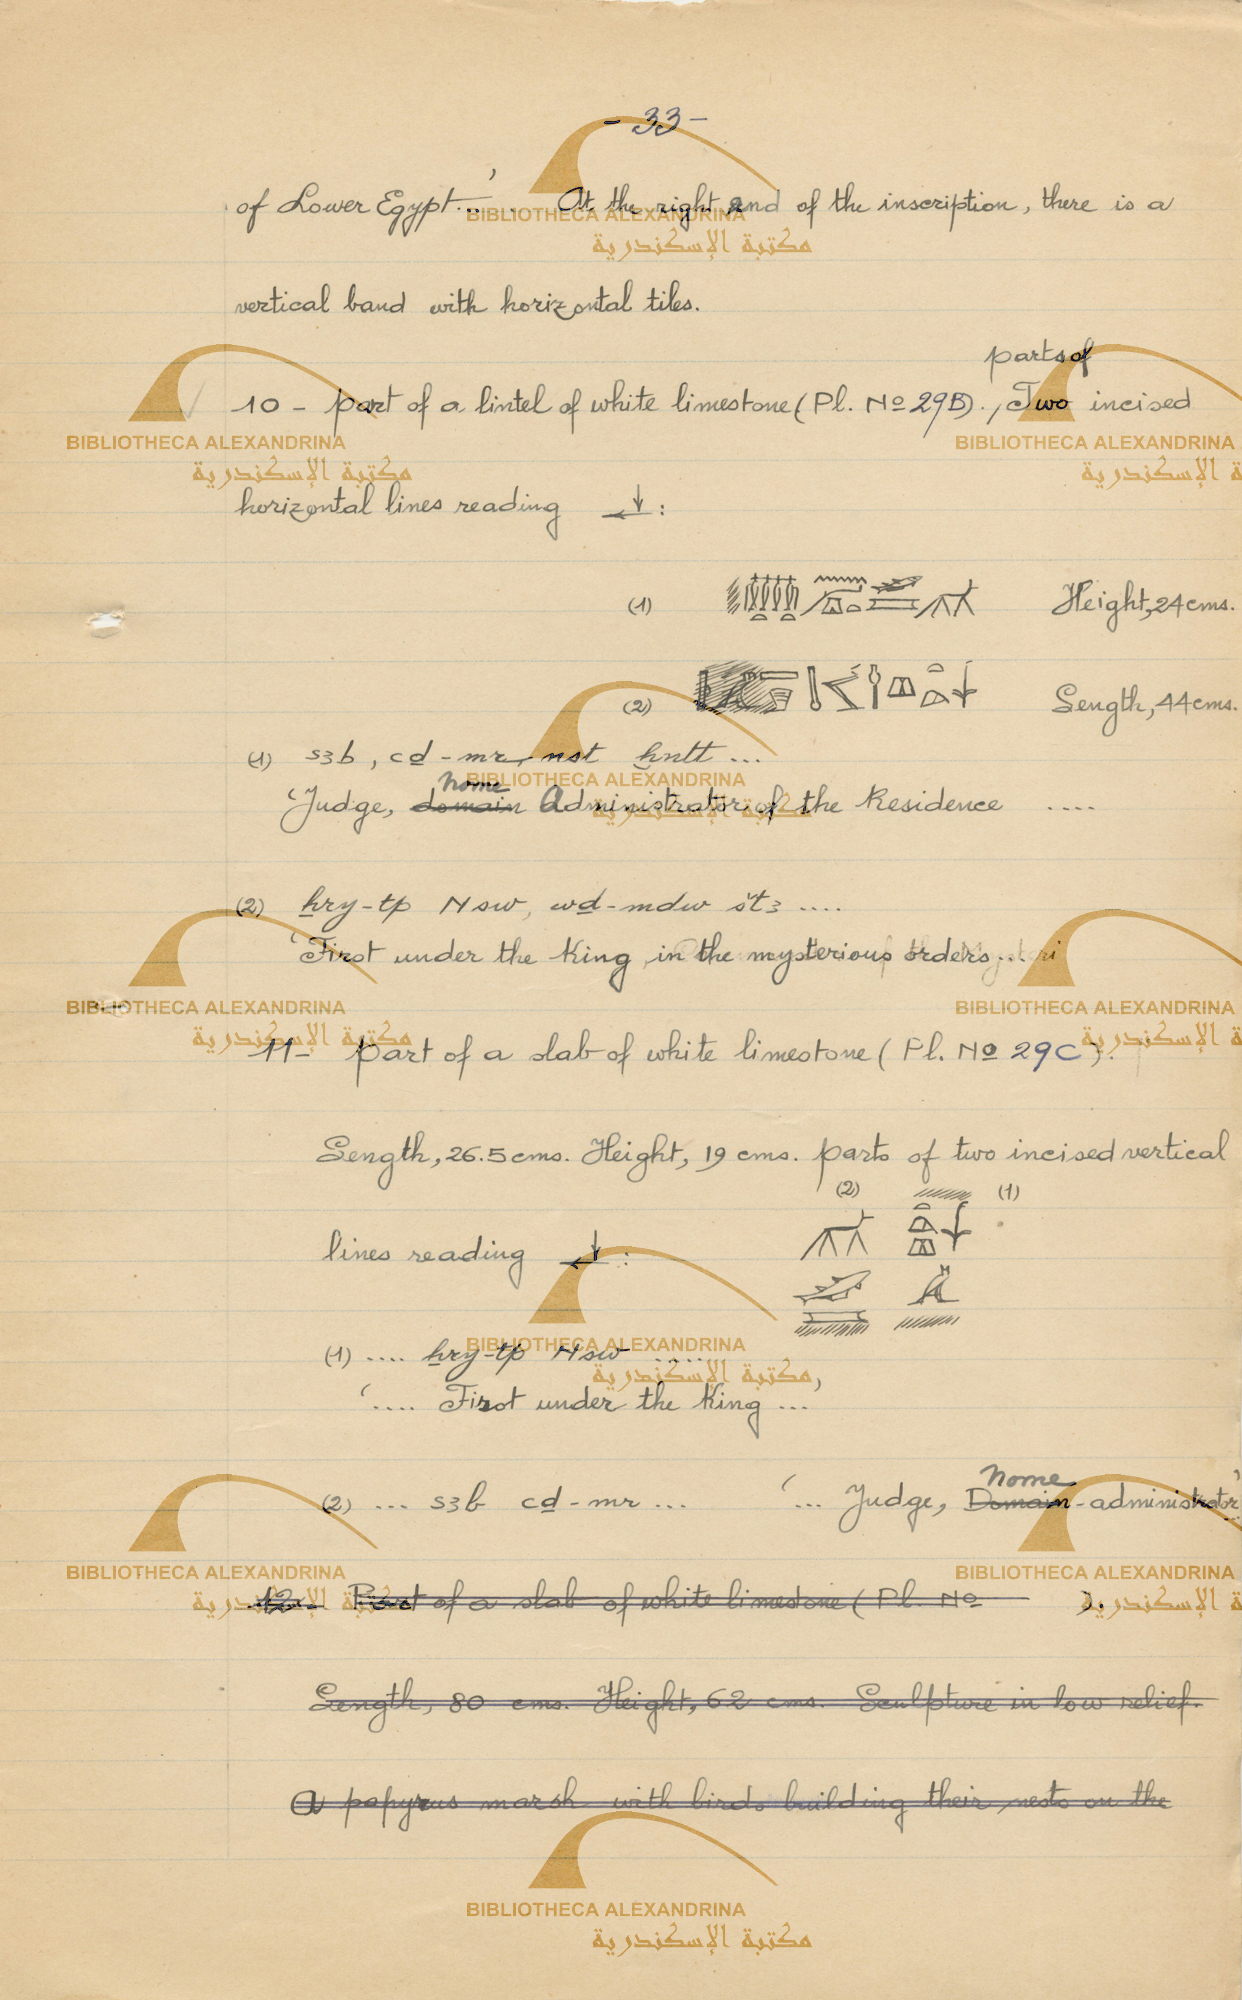 - 33 -
of Lower Egypt...'. At the right end of the inscription, there is a
vertical band with horizontal tiles.
parts of
10 - part of a lintel of white limestone (Pl. No 29B)., Two incised
horizontal lines reading ↓← :
(1) Height, 24 cms.
(2) Length, 44 cms.
(1) s3b, cd-mr, nst ḫntt ...
'Judge, domain Nome Administrator of the Residence ....
(2) ẖry-tp Nsw, wd-mdw št3 ....
'First under the King in the mysterious orders...
11 - part of a slab of white limestone (Pl. No 29C).
Length, 26.5 cms. Height, 19 cms. parts of two incised vertical
(2) (1)
lines reading ↓← :
(1) .... ẖry-tp Nsw .....
'.... First under the King ...'
(2) ... s3b cd-mr ... '... Judge, Domain Nome -administrator'
12 - Part of a slab of white limestone (Pl. No ).
Length, 80 cms. Height, 62 cms. Sculpture in low relief.
A papyrus marsh with birds building their nests on the
BIBLIOTHECA ALEXANDRINA
مكتبة الإسكندرية